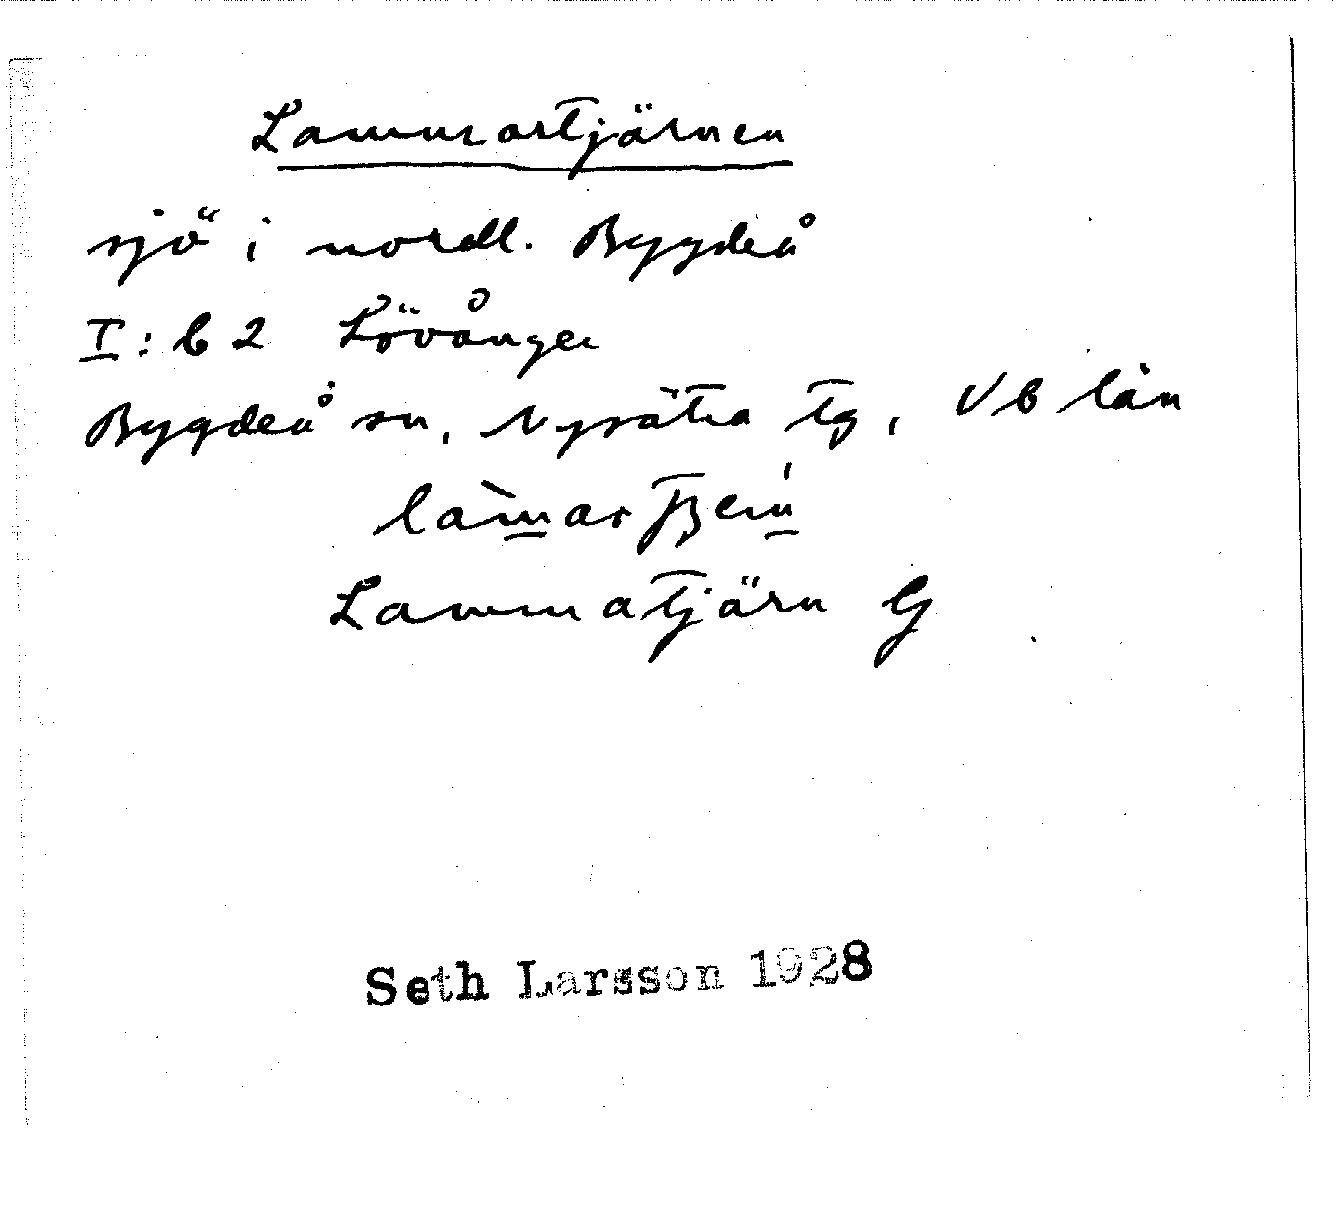 Lammartjärnen
sjö i nordl. Bygdeå
I: b 2 Lövånger
Bygdeå sn, Nysätra tg, Vb län
Lammatjärn G
Seth Larsson 1928